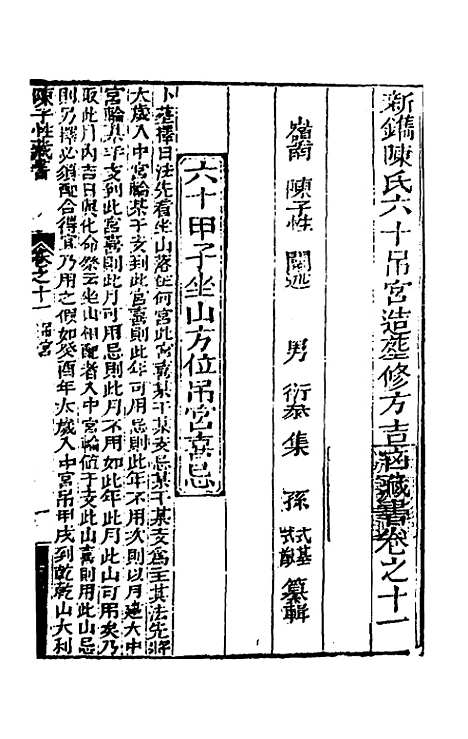 新鐫陳氏六十吊宮造塟修方吉凶藏書卷之十一
嶺南 陳子性 闡述 男 衍泰集 孫 式基 式猷 纂輯
六十甲子坐山方位吊宮喜忌
卜塟擇日法先看坐山落在何宮此宮喜某干某支忌某干某支爲主其法先將
大歲入中宮輪某干支到此宮喜則此年可用忌則此年不用次則以月建入中
宮輪某干支到此宮喜則此月可用忌則此月不用如此年此月此山可用矣乃
取此月內吉日與化命祭云坐山相配者入中宮輪値干支此山喜則用此山忌
則另擇必須配合得宜乃用之假如癸酉年太歲入中宮吊甲戌到乾乾山大利
陳子性藏書 卷之十一 吊宮 一